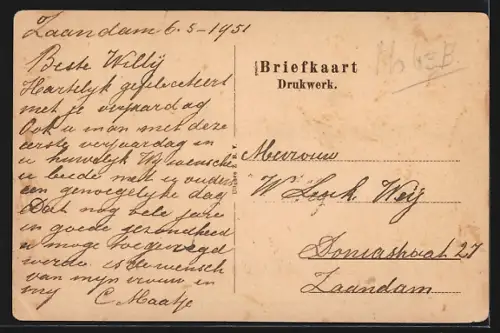 Zaandam 6-5-1951
Beste Willy
Hartelijk gefeliciteert
met je verjaardag
Ook u man met deze
eerste verjaardag in
u huwelijk Wij wensche
u beide met u ouders
een genoegelijke dag
Dat nog vele jare
in goede gezondheid
u moge toegevoegd
werde is de wensch
van mijn vrouw en
mij C Maatje
Briefkaart
Drukwerk.
Mevrouw
W
Zaandam